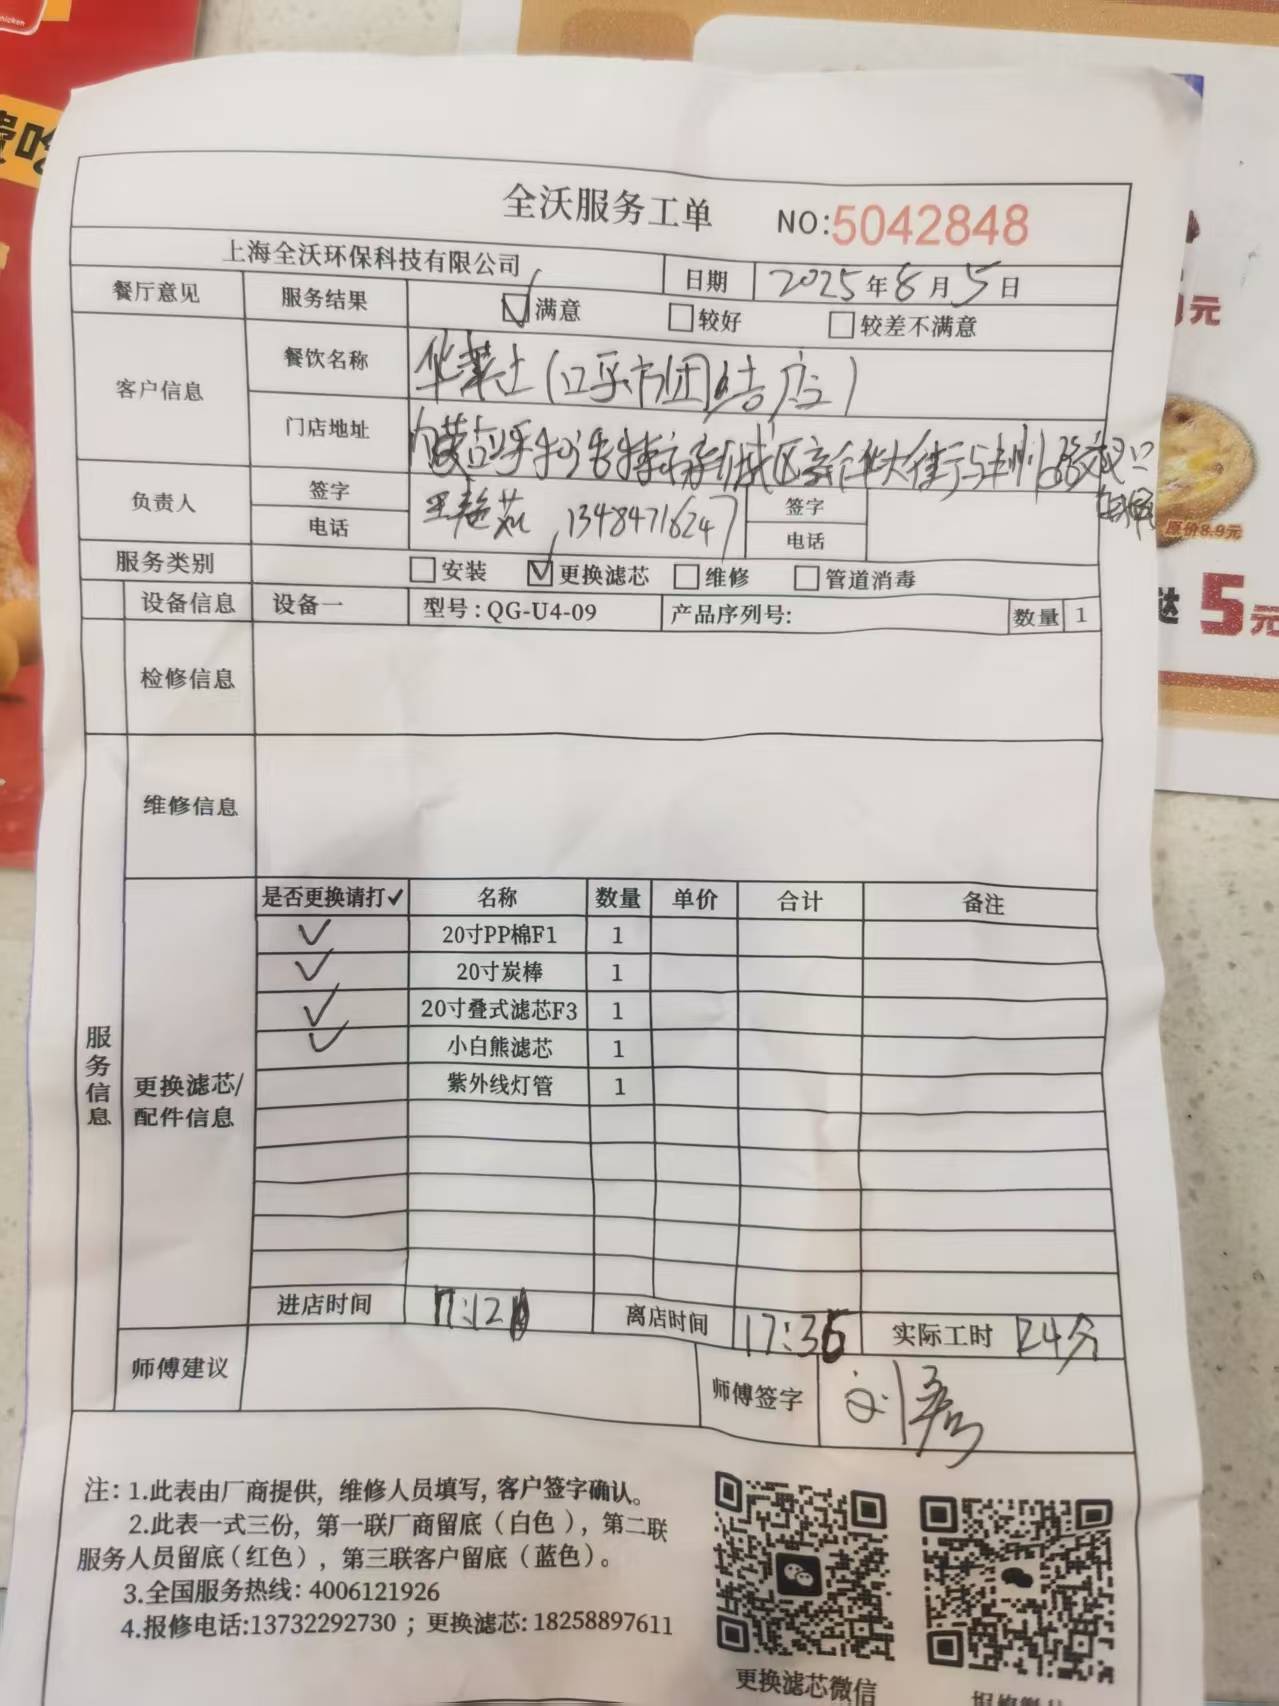 全沃服务工单 NO:5042848
上海全沃环保科技有限公司 日期 2025年8月5日
餐厅意见 服务结果 ☑满意 □较好 □较差不满意
客户信息 餐饮名称 华莱士(呼市团结店)
门店地址 新城区新华大街与丰州路交叉口
负责人 签字 签字
电话 13484716247 电话
服务类别 □安装 ☑更换滤芯 □维修 □管道消毒
设备信息 设备一 型号:QG-U4-09 产品序列号: 数量 1
检修信息
维修信息
服务信息
更换滤芯/
配件信息
是否更换请打✓ 名称 数量 单价 合计 备注
✓ 20寸PP棉F1 1
✓ 20寸炭棒 1
✓ 20寸叠式滤芯F3 1
✓ 小白熊滤芯 1
紫外线灯管 1
进店时间 离店时间 17:36 实际工时 24分
师傅建议 师傅签字 刘彦
注:1.此表由厂商提供,维修人员填写,客户签字确认。
2.此表一式三份,第一联厂商留底(白色),第二联
服务人员留底(红色),第三联客户留底(蓝色)。
3.全国服务热线:4006121926
4.报修电话:13732292730;更换滤芯:18258897611
更换滤芯微信
原价8.9元
5元